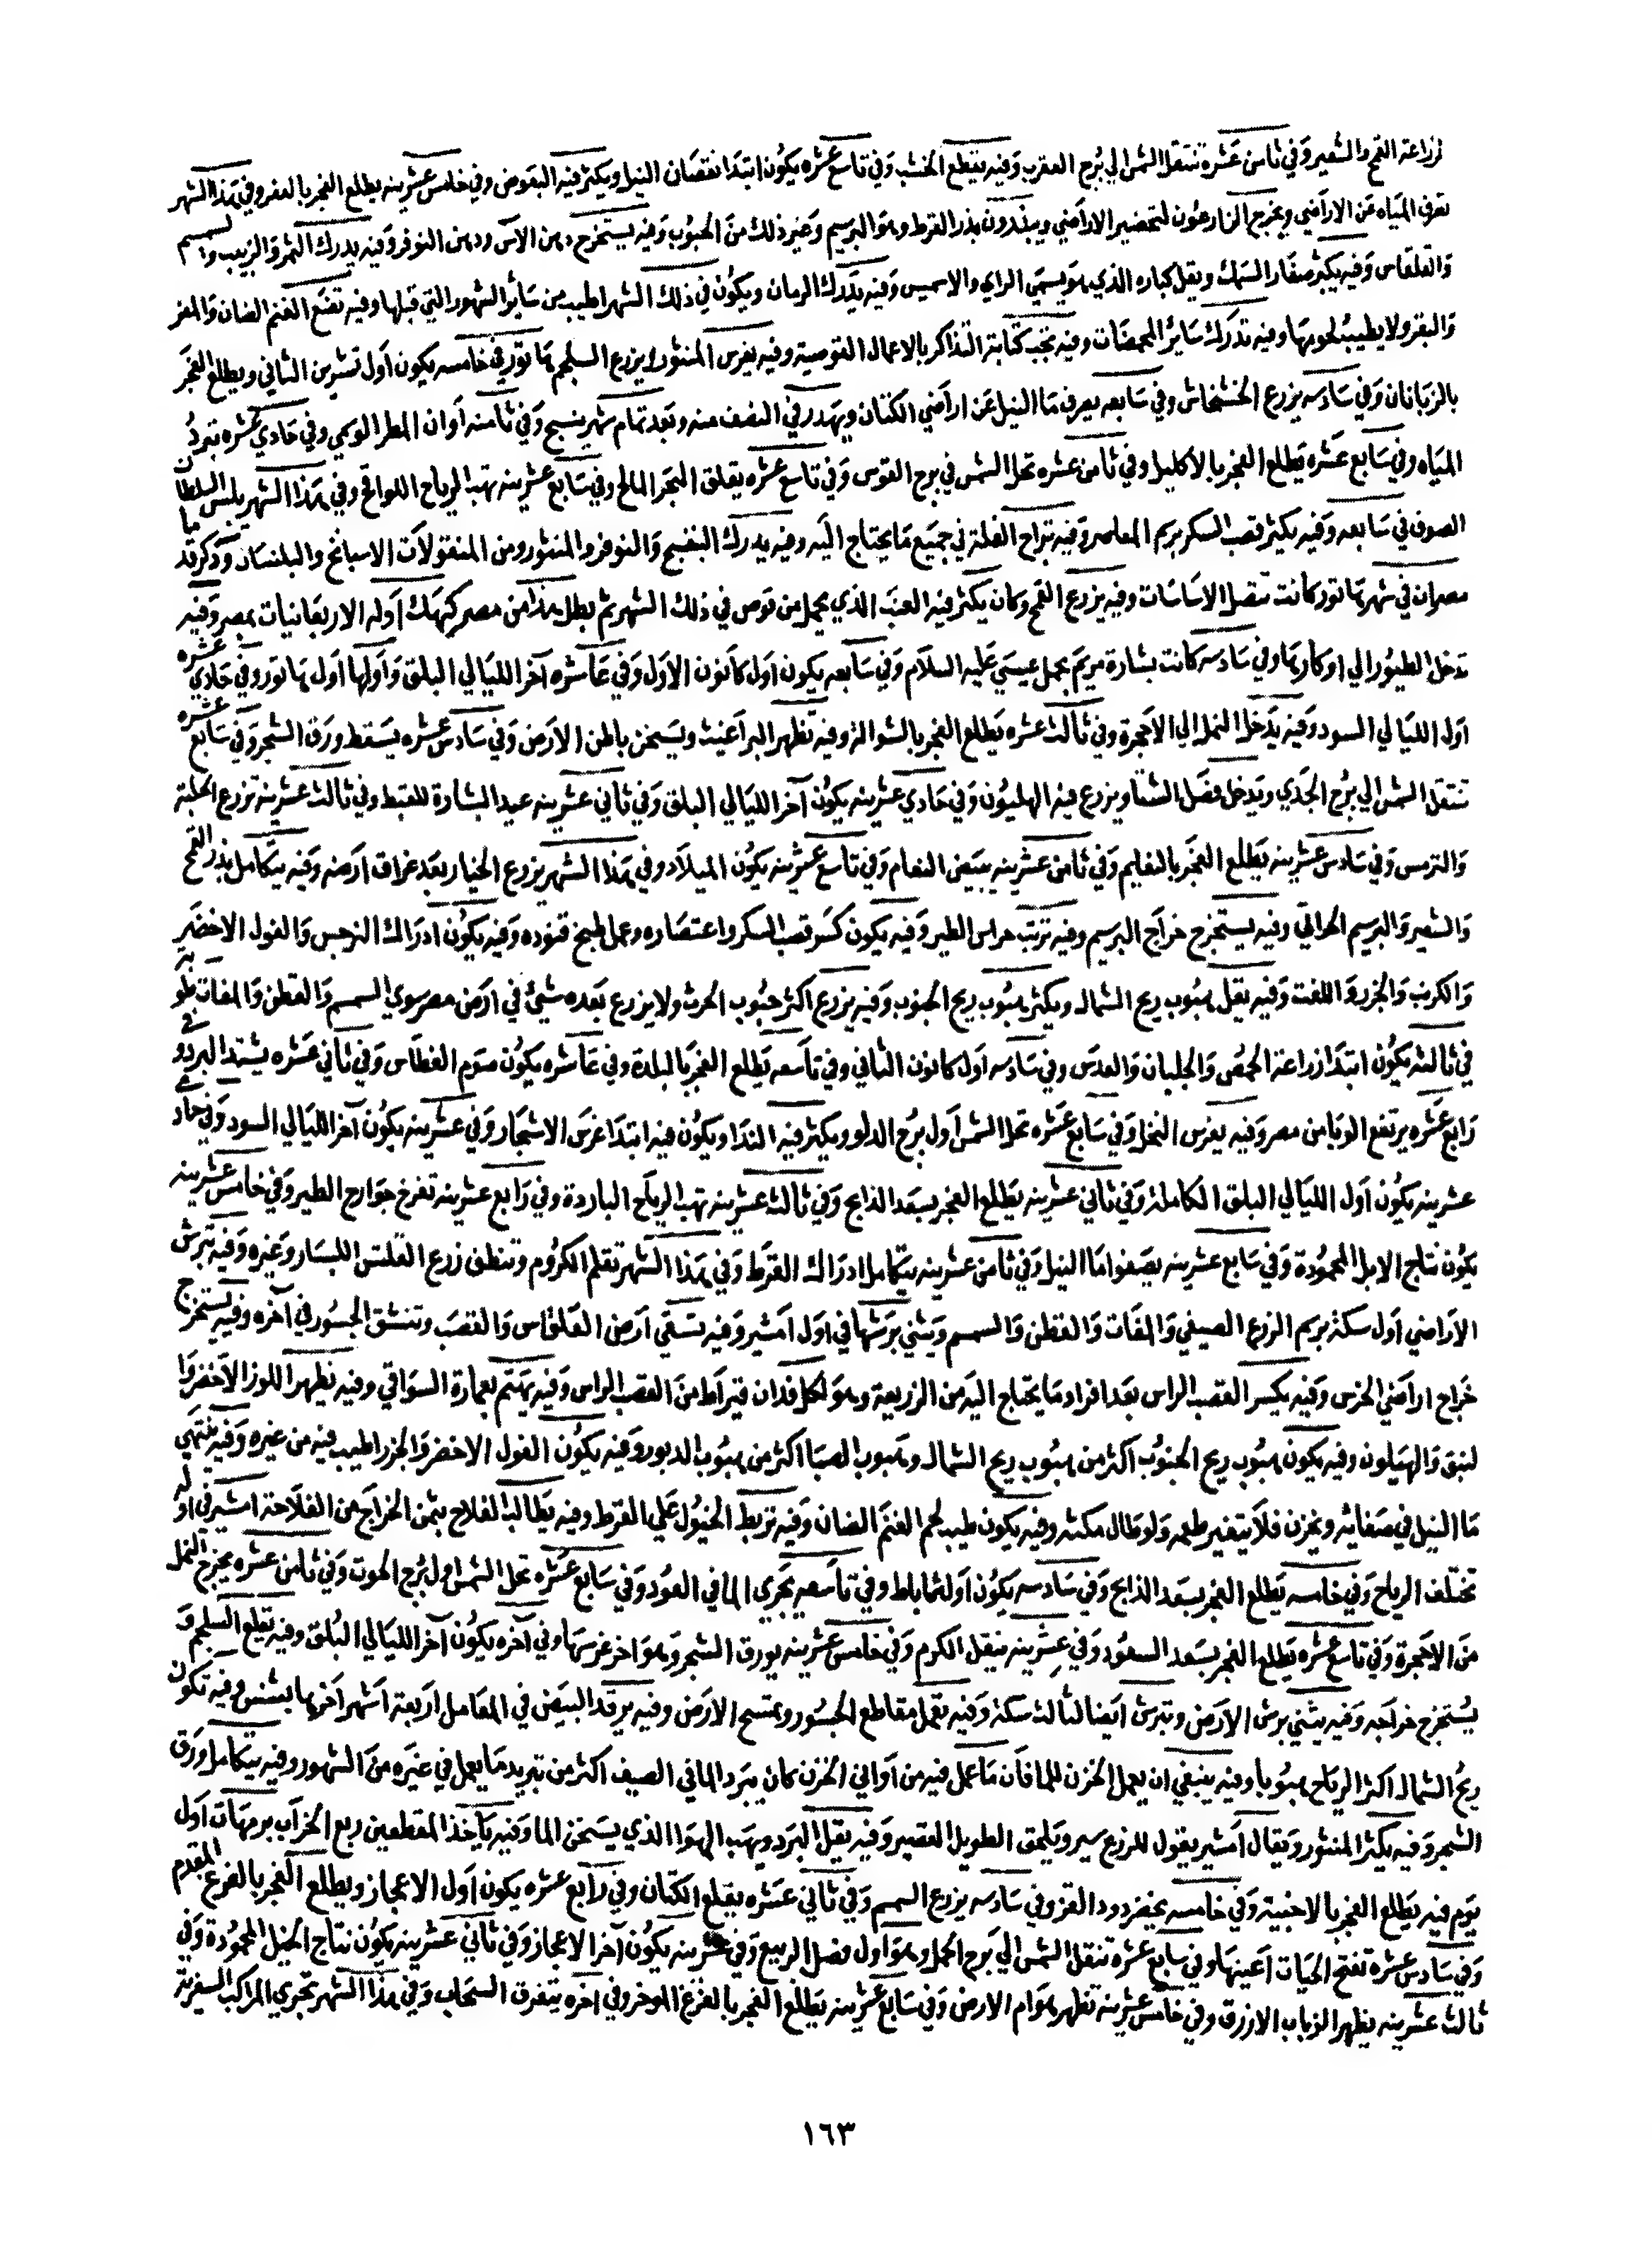 لزراعة القمح والشعير وفي ثامن عشره تنتقل الشمس الي برج العقرب وفيه يقطع الخشب وفي تاسع عشره يكون ابتدا نقصان النيل ويكثر فيه البعوض وفي خامس عشرينه يطلع الفجر بالغفر وفي هذا الشهر
تعرق المياه عن الاراضي ويخرج المزارعون لتحضير الاراضي ويبتدون ببذر القرط وهو البرسيم وغير ذلك من الحبوب وفيه يستخرج دهن الآس ودهن النوفر وفيه يدرك التمر والزبيب والسمسم
والقلقاس وفيه يكثر صغار السمك ويقل كباره الذي هو يسمي الراي والابرميس وفيه يدرك الرمان ويكون في ذلك الشهر اطيب من سائر الشهور التي قبلها وفيه تضع الغنم الضان والمعز
والبقر ولا يطيب لحومها وفيه تدرك سائر المحمضات وفيه يجب كتابة التذاكر بالاعمال القوصية وفيه يغرس المنثور ويزرع السلجم هاتور في خامسه يكون اول تشرين الثاني ويطلع الفجر
بالزبانان وفي سادسه يزرع الخشخاش وفي سابعه يعرق ما النيل عن اراضي الكتان ويبذر في النصف منه وبعد تمام شهر ينسبخ وفي ثامنه اوان المطر الوسمي وفي حادي عشره تبرد
المياه وفي سابع عشره يطلع الفجر بالاكليل وفي ثامن عشره تحل الشمس في برج القوس وفي تاسع عشره يغلق البحر المالح وفي سابع عشرينه تهب الرياح اللواقح وفي هذا الشهر يلبس السلطان
الصوف في سابعه وفيه يكثر قصب السكر برسم المعاصر وفيه تراح الغلة في جميع ما يحتاج اليه وفيه يدرك البنفسج والنوفر والمنثور ومن المنقولات الاسبانخ والبلنسان وذكر قدما
مصر ان في شهر هاتور كانت تنصل الاساسات وفيه يزرع القمح وكان يكثر فيه العنب الذي يحمل من قوص في ذلك الشهر ثم بطل هذا من مصر كيهك اوله الاربعانيات بمصر وفيه
تدخل الطيور الي اوكارها وفي سادسه كانت بشارة مريم بحمل عيسي عليه السلام وفي سابعه يكون اول كانون الاول وفي عاشره آخر الليالي البلق واولها اول هاتور وفي حادي عشره
اول الليالي السود وفيه يدخل النمل الي الاحجرة وفي ثالث عشره يطلع الفجر بالشوالة وفيه تظهر البراغيث ويسخن باطن الارض وفي سادس عشره يسقط ورق الشجر وفي سابع عشره
تنتقل الشمس الي برج الجدي ويدخل فصل الشتا ويزرع فيه الهليون وفي حادي عشرينه يكون آخر الليالي البلق وفي ثاني عشرينه عيد البشارة للقبط وفي ثالث عشرينه تزرع الحلبة
والترمس وفي سادس عشرينه يطلع الفجر بالنعايم وفي ثامن عشرينه يبيض النعام وفي تاسع عشرينه يكون الميلاد وفي هذا الشهر يزرع الخيار بعد غراق ارضه وفيه يتكامل بذر القمح
والشعير والبرسيم الحراثي وفيه يستخرج خراج البرسيم وفيه ترتب حراس الطير وفيه يكون كسر قصب السكر واعتصاره وعمل طبخ قنوده وفيه يكون ادراك النرجس والفول الاخضر
والكرنب والجزر واللفت وفيه يقل هبوب ريح الشمال ويكثر هبوب ريح الجنوب وفيه يزرع اكثر حبوب الحرث ولا يزرع بعده شيئ في ارض مصر سوي السمسم والقطن والمقات طوبه
في ثالثه يكون ابتدا زراعة الحمص والجلبان والعدس وفي سادسه اول كانون الثاني وفي تاسعه يطلع الفجر بالبلدة وفي عاشره يكون صوم الغطاس وفي ثاني عشره يشتد البرد وفي
رابع عشره يرتفع الوبا من مصر وفيه يغرس النخل وفي سابع عشره تحل الشمس اول برج الدلو ويكثر فيه الندا ويكون فيه ابتدا غرس الاشجار وفي عشرينه يكون آخر الليالي السود وفي حادي
عشرينه يكون اول الليالي البلق الكاملة وفي ثاني عشرينه يطلع الفجر بسعد الذابح وفي ثالث عشرينه تهب الرياح الباردة وفي رابع عشرينه تفرخ جوارح الطير وفي خامس عشرينه
يكون نتاج الابل المحمودة وفي سابع عشرينه يصفوا ما النيل وفي ثامن عشرينه يتكامل ادراك القرط وفي هذا الشهر تقلم الكروم وتنظف زرع الغلة من اللبسان وغيره وفيه تبرش
الاراضي اول سكة برسم الزرع الصيفي والمقات والقطن والسمسم ويثني برشها في اول امشير وفيه تسقي ارض القلقاس والقصب وتنشق الجسور في آخره وفيه يستخرج
خراج اراضي الخرس وفيه يكسر القصب الراس بعد افراد ما يحتاج اليه من الزريعة وهو لكل فدان قيراط من القصب الراس وفيه يهتم بعمارة السواقي وفيه تظهر اللوز الاخضر وا
لنبق والهليون وفيه يكون هبوب ريح الجنوب اكثر من هبوب ريح الشمال وهبوب الصبا اكثر من هبوب الدبور وفيه يكون الفول الاخضر والجزر اطيب فيه من غيره وفيه ينتهي
ما النيل في صفائه ويخزن فلا يتغير طعمه ولو طال مكثه وفيه يكون طيب لحم الغنم الضان وفيه تربط الخيول علي القرط وفيه يطالب الفلاح بثمن الخراج من الفلاحة امشير في اوله
تختلف الرياح وفي خامسه يطلع الفجر بسعد الذابح وفي سادسه يكون اول شباط وفي تاسعه يجري الما في العود وفي سابع عشره تحل الشمس اول برج الحوت وفي ثامن عشره يخرج النمل
من الاحجرة وفي تاسع عشره يطلع الفجر بسعد السعود وفي عشرينه ينقل الكرم وفي خامس عشرينه يورق الشجر وهو اخر غرسها وفي آخره يكون آخر الليالي البلق وفيه يقلع السلجم و
يستخرج خراجه وفيه يثني برش الارض وتبرش ايضا لثالث سكة وفيه تعمل مقاطع الجسور وتمسح الارض وفيه يرقد البيض في المعامل اربعة اشهر آخرها بشنس وفيه تكون
ريح الشمال اكثر الرياح هبوبا وفيه ينبغي ان يعمل الخزف للما فان ما عمل فيه من اواني الخزف كان يبرد الما في الصيف اكثر من تبريد ما يعمل في غيره من الشهور وفيه يتكامل ورق
الشجر وفيه يكثر المنثور ويقال امشير يقول للزرع سير ويلحق الطويل القصير وفيه يقل البرد ويهب الهوا الذي يسخن الما وفيه ياخذ المقطعين ربع الخراب برمهات اول
يوم فيه يطلع الفجر بالاخبية وفي خامسه يحضر دود القز وفي سادسه يزرع السمسم وفي ثاني عشره يقلع الكتان وفي رابع عشره يكون اول الاعجاز ويطلع الفجر بالفرغ المقدم
وفي سادس عشره تفتح الحيات اعينها وفي سابع عشره تنتقل الشمس الي برج الحمل وهو اول فصل الربيع وفي عشرينه يكون آخر الاعجاز وفي ثاني عشرينه يكون نتاج الخيل المحمودة وفي
ثالث عشرينه يظهر الذباب الازرق وفي خامس عشرينه تظهر هوام الارض وفي سابع عشرينه يطلع الفجر بالفرغ الموخر وفي آخره يتفرق السحاب وفي هذا الشهر تجري المراكب السفرية
١٦٣